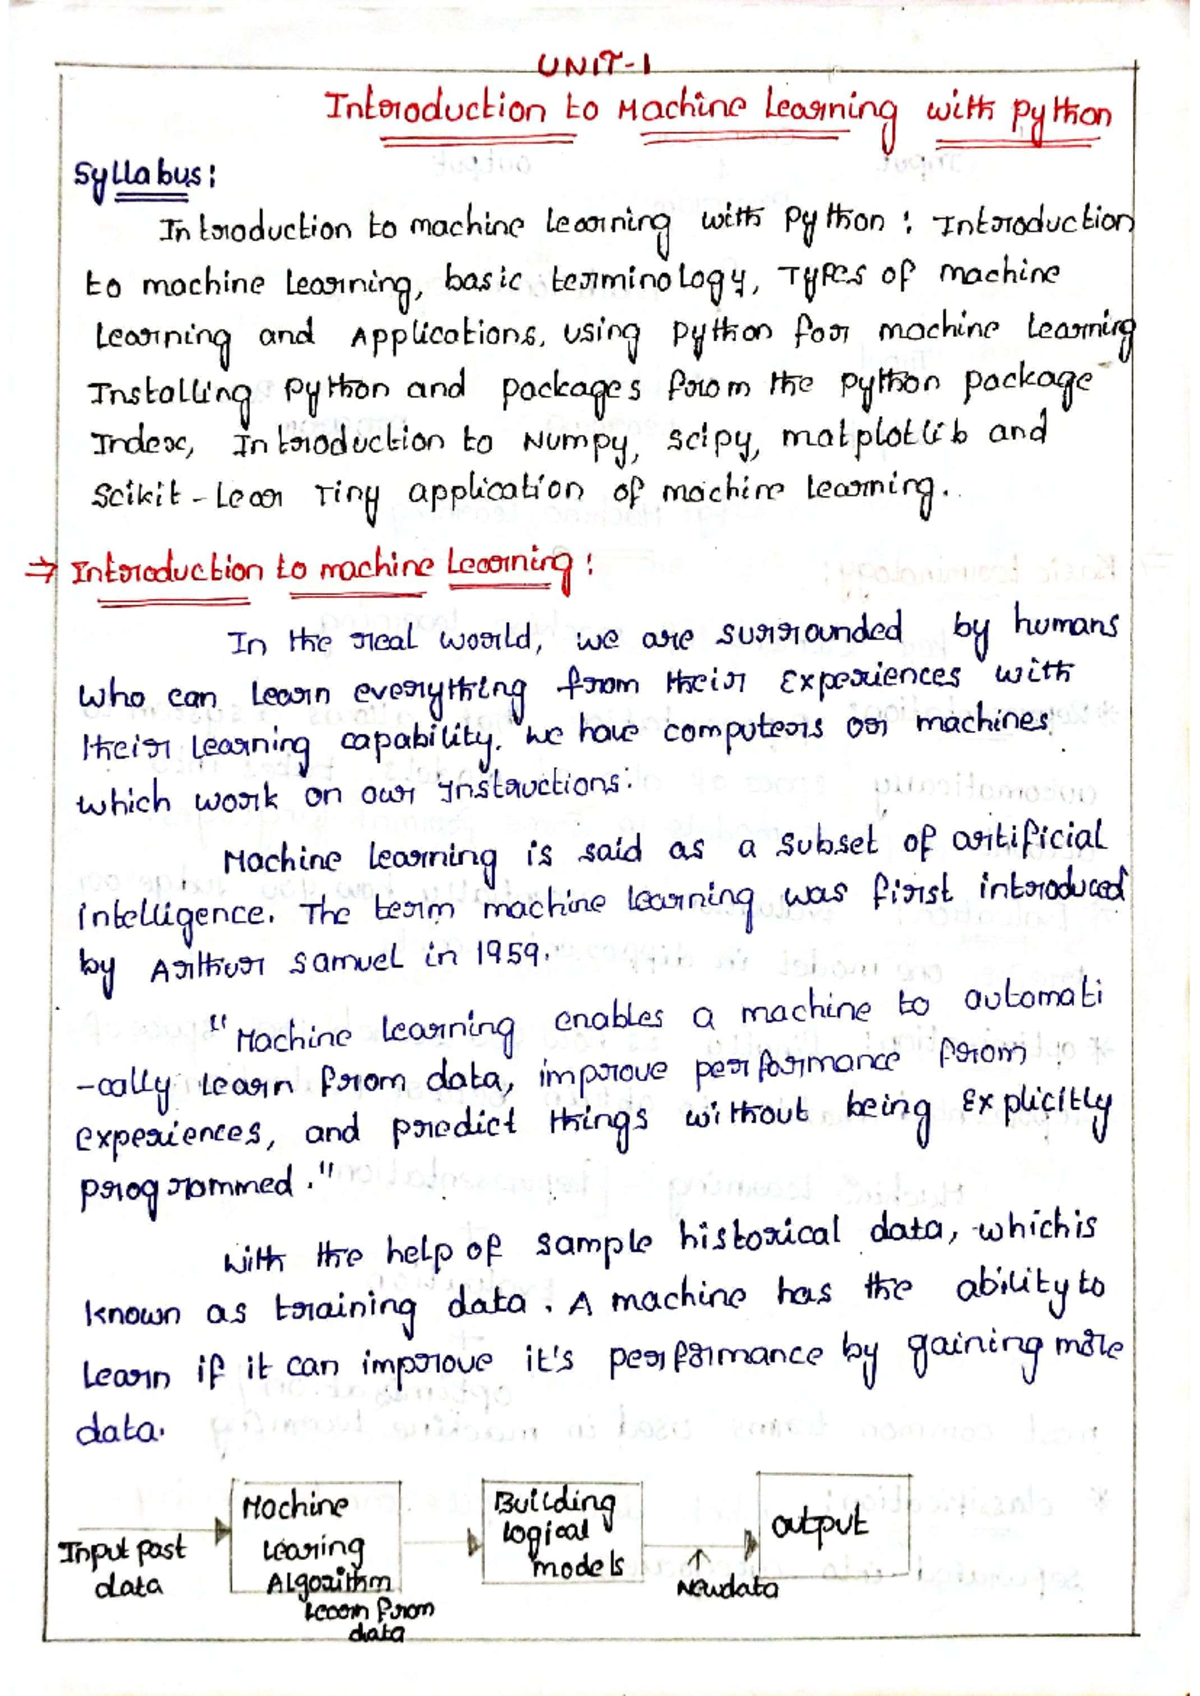 UNIT-1
Introduction to Machine Learning with Python
Syllabus:
Introduction to machine learning with Python : Introduction
to machine learning, basic terminology, Types of machine
learning and Applications, using Python for machine learning
Installing Python and packages from the Python package
Index, Introduction to Numpy, scipy, matplotlib and
Scikit-Lear Tiny application of machine learning.
⇒ Introduction to machine Learning:
In the real world, we are surrounded by humans
who can learn everything from their experiences with
their learning capability. we have computers or machines
which work on our instructions.
Machine learning is said as a subset of artificial
intelligence. The term machine learning was first introduced
by Arthur Samuel in 1959.
"Machine learning enables a machine to automati
-cally learn from data, improve performance from
experiences, and predict things without being explicitly
programmed."
with the help of sample historical data, which is
known as training data. A machine has the ability to
learn if it can improve it's performance by gaining more
data.
Input past
data
Machine
Learing
Algorithm
Learn from
data
Building
logical
models
Newdata
output